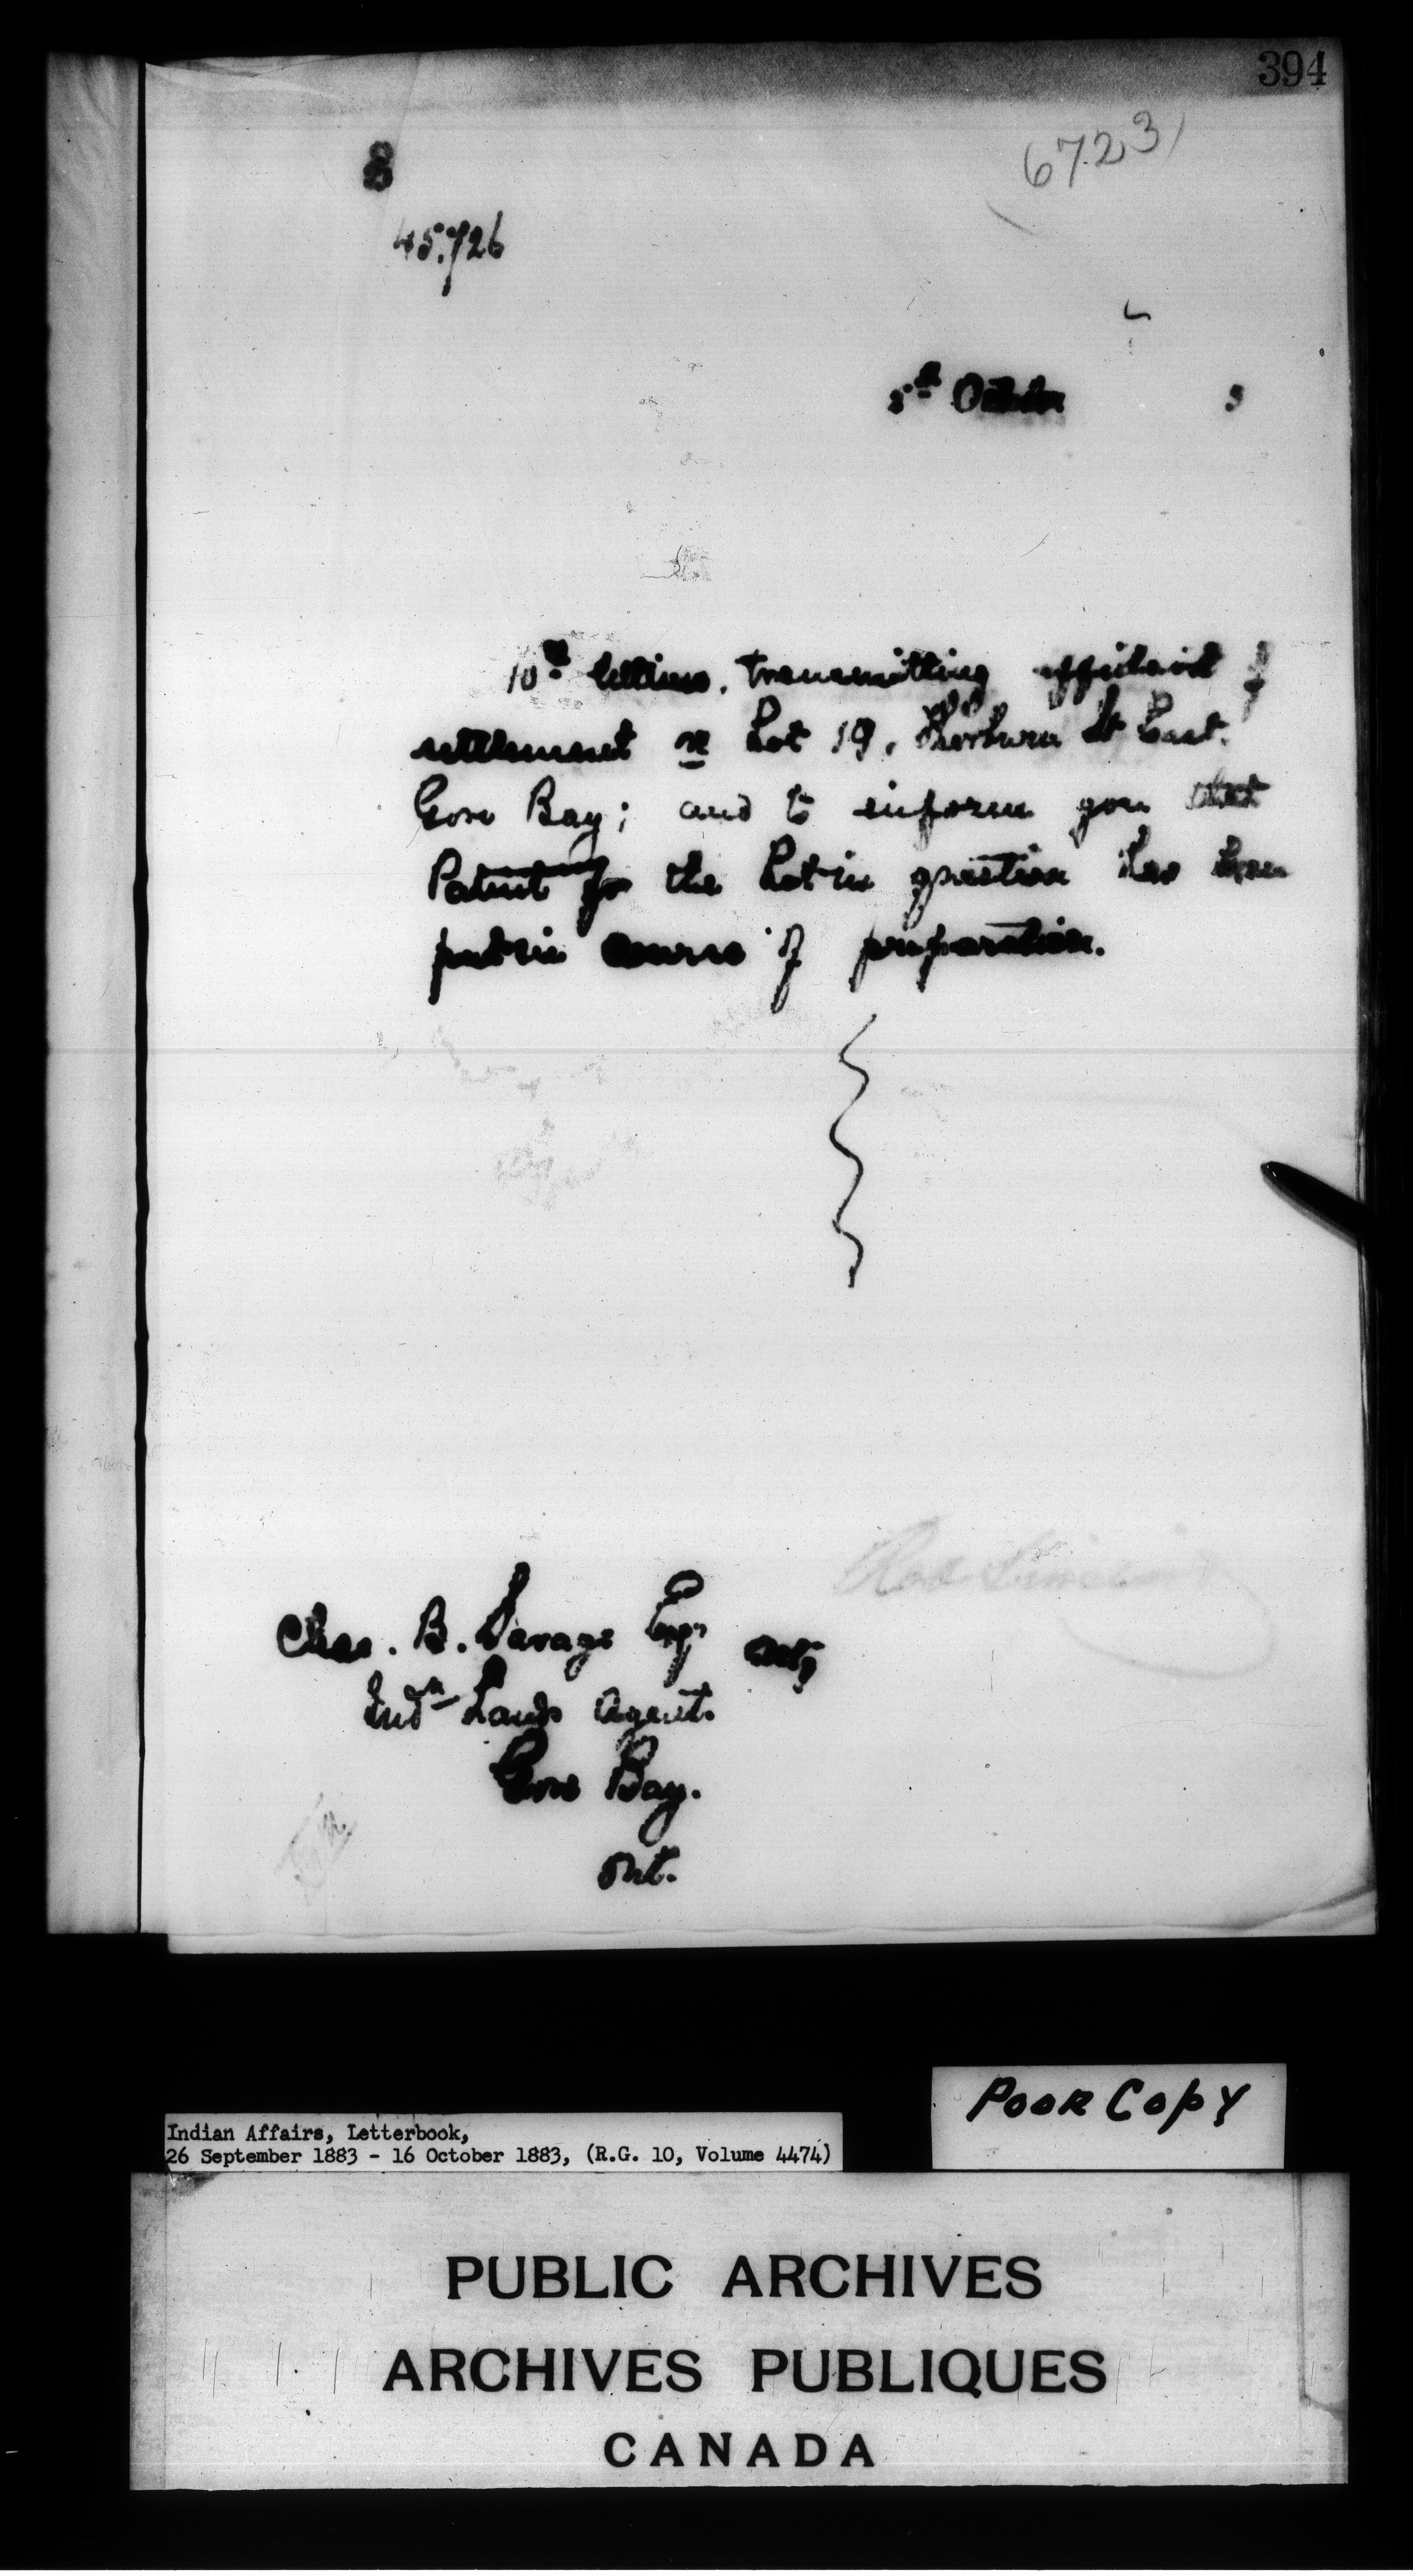 394
6723
8
45.726
5th October 3
10th ultimo, transmitting affidavit of
settlement re Lot 19, St East.
Gore Bay; and to inform you that
Patent for the Lot in question has been
put in course of preparation.
Chas. B. Savage Esqr Actg
Indn Lands Agent.
Gore Bay.
Ont.
Robt Sinclair
POOR COPY
Indian Affairs, Letterbook,
26 September 1883 - 16 October 1883, (R.G. 10, Volume 4474)
PUBLIC ARCHIVES
ARCHIVES PUBLIQUES
CANADA